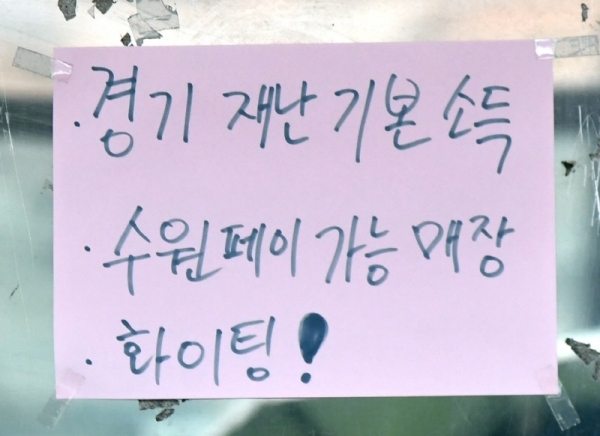 · 경기 재난 기본 소득
· 수원페이 가능 매장
· 화이팅!